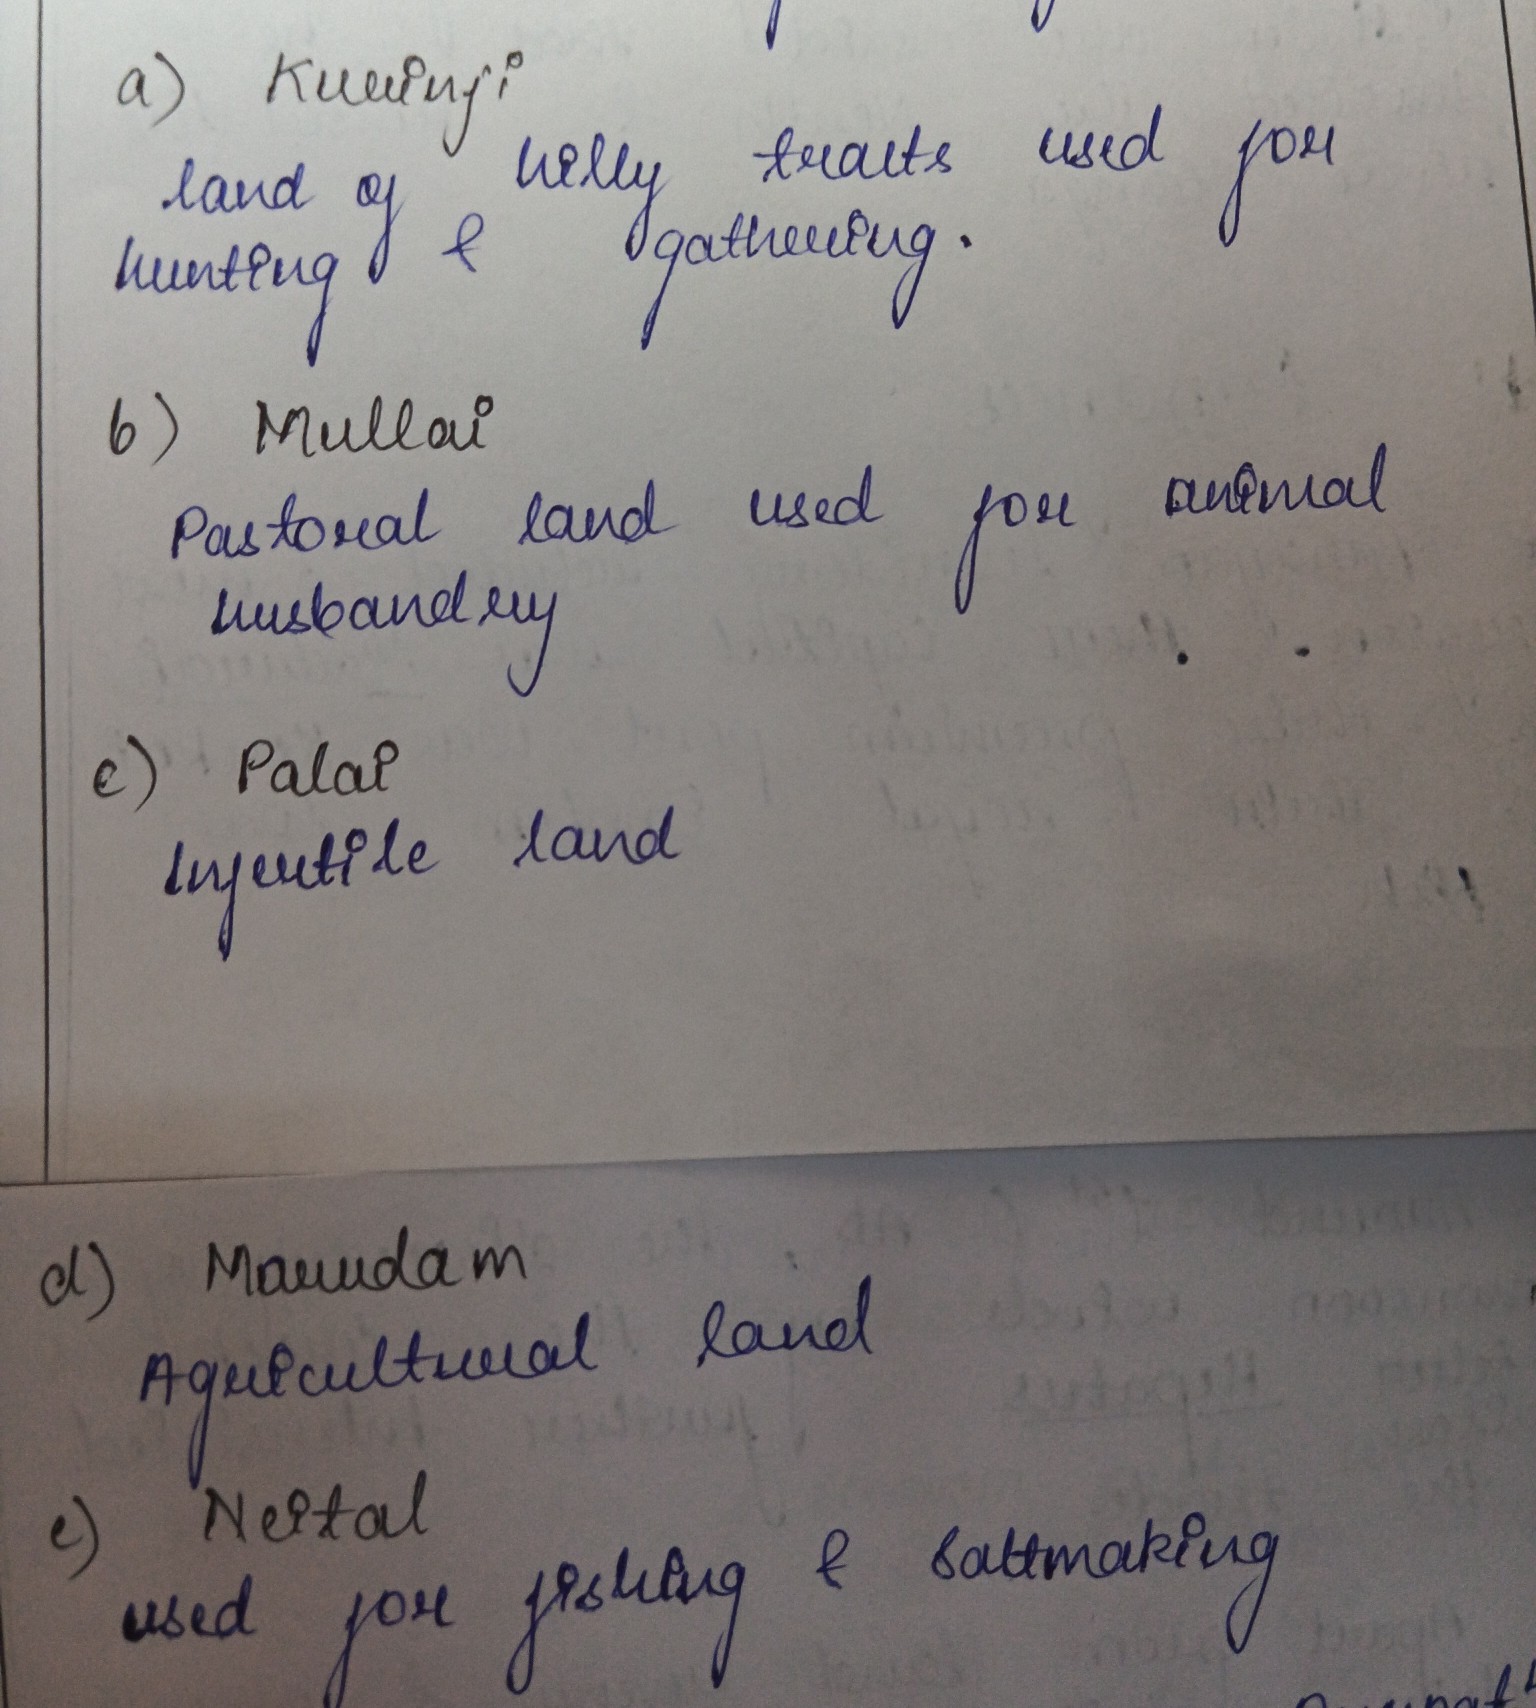 a) Kurinji
land of hilly tracts used for
hunting & gathering.
b) Mullai
Pastoral land used for animal
husbandry
c) Palai
Infertile land
d) Marudam
Agricultural land
e) Neital
used for fishing & saltmaking